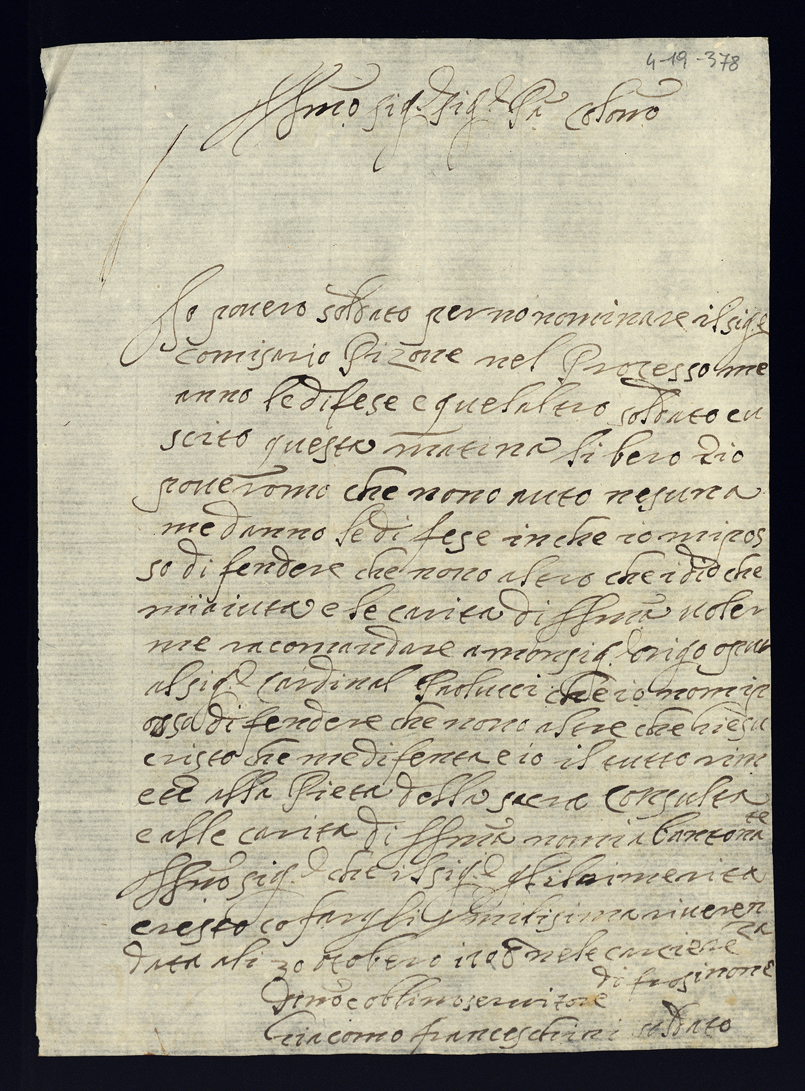 4-19-378
Illmo sig.r sig.r Pa colomo
Io povero soldato per no nominare il sig.r
comisario Pizone nel Processo me
anno le difese e quelaltro soldato eu
scito questa matina libero Dio
poveromo che nono auto nesuna
me danno le di fese inche io mi pos
so di fendere che nono altro che idio che
mi aiuta e le carita di Illma voler
me racomandare a monsig.r origo opur
al sig.r Cardinal Paolucci che io nomi p
ossa di fendere che nono altre che iiesu
cristo che me difenta e io il tutto rim
ete alla Pieta della sacra Consulta
e alle carita di Illma nomi abantona
te
Illmo sig.r che il sig.r rimerita
e resto co fargli umilisima riveren
za
data ali 20 otobero 1708 nele carciere
di frosinone
Dmo e oblimo servitore
Giacomo franceschini soldato